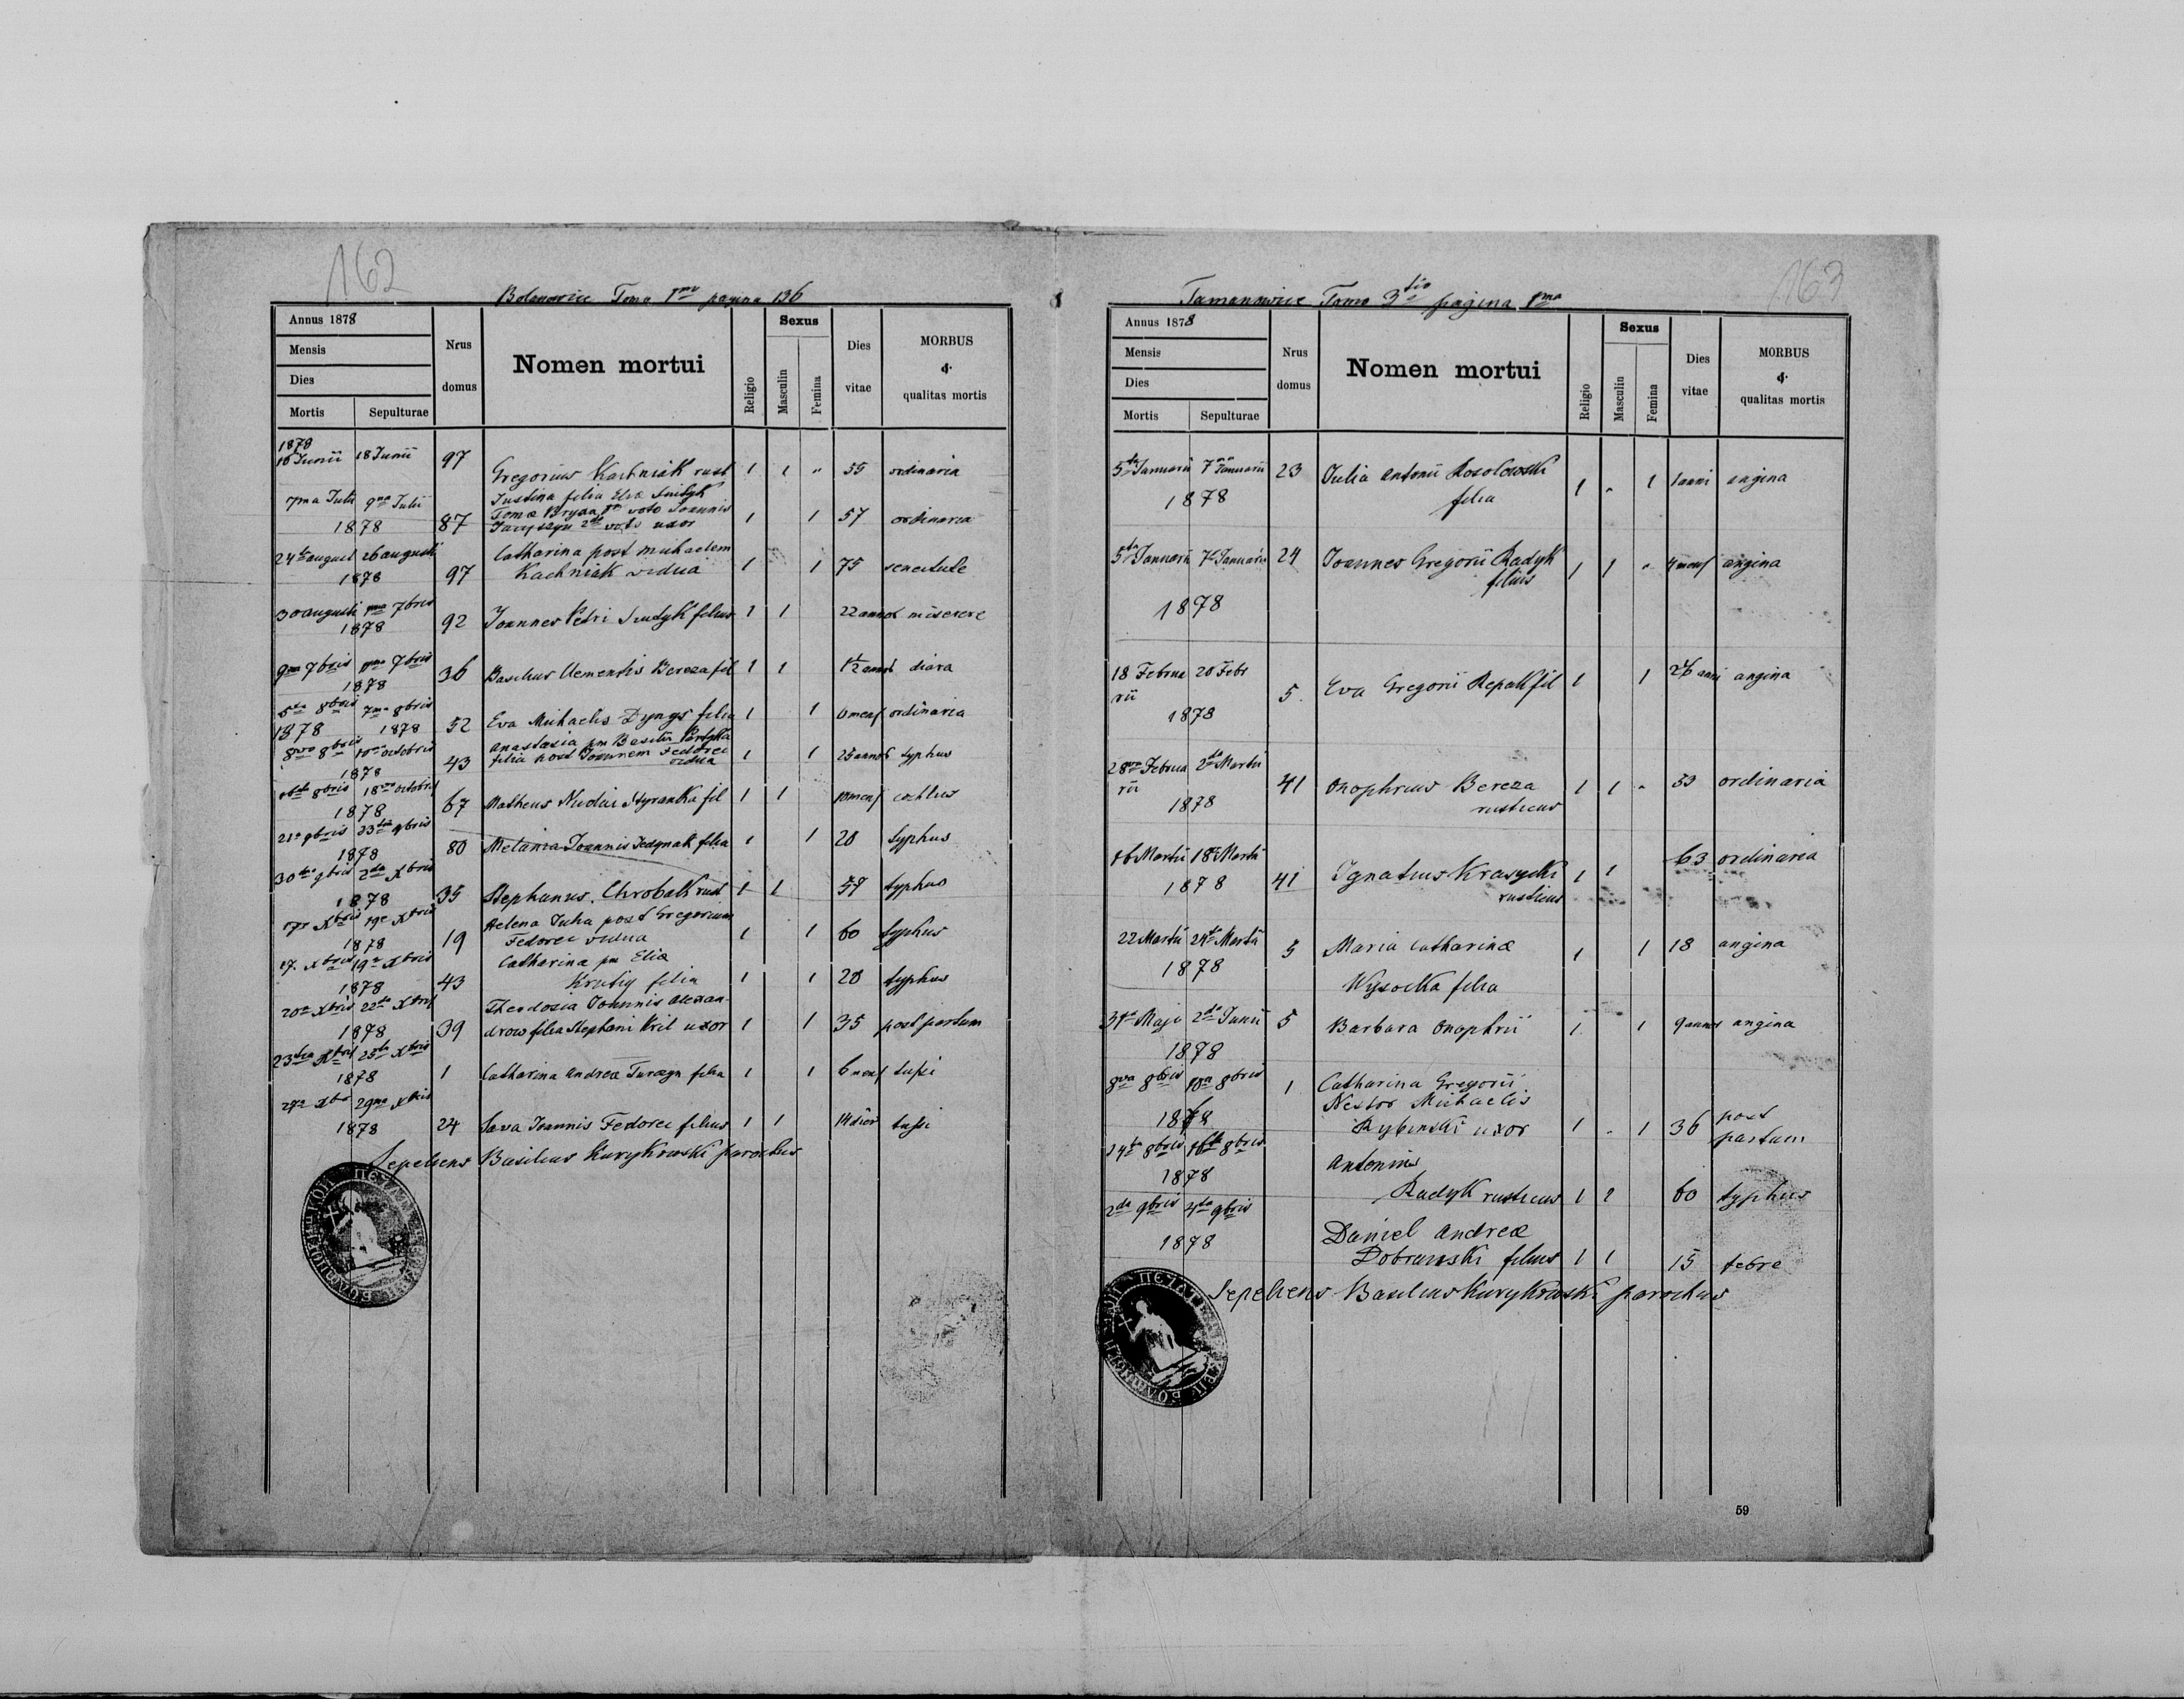 162
Bolanowice Tomo 1mo pagina 136
Annus 1878
Mensis
Dies
Mortis Sepulturae
Nrus domus
Nomen mortui
Religio
Sexus
Masculin
Femina
Dies vitae
MORBUS & qualitas mortis
1878
16 Junii 18 Junii 97 Gregorius Kachniak rust 1 1 " 55 ordinaria
7ma Julii 9na Julii Justina filia Eliæ
Tomæ voto Joannis
1878 87 2do voto uxor 1 1 57 ordinaria
24ta august 26 augusti Catharina post Michaelem
1878 97 Kachniak vidua 1 1 75 senectute
30 augusti 1ma 7bris
1878 92 Joannes Petri filius 1 1 22 annos miserere
9na 7bris 7bris 36 Basilius Clementis Bereza fil 1 1 1/2 diara
1878
5ta 8bris 7ma 8bris
1878 1878 52 Eva Michaelis filia 1 1 6 mens ordinaria
8va 8bris 10ma octobris Anastasia pm Basilii
43 filia post Joannem Fedorec vidua 1 1 25 annos typhus
1878
8bris 18va octobris 67 Matheus Styranka fil 1 1 10 mens
1878
21a 9bris 23tia 9bris 80 Melania Joannis Jedynak filia 1 1 20 typhus
1878
30ta 9bris 2da Xbris
1878 35 Stephanus Chrobak rust 1 1 57 typhus
17 Xbris 19 Xbris Helena Juha post Gregorium
1878 19 Fedorec vidua 1 1 60 typhus
17 Xbris 19a Xbris Catharina pm Eliæ
1878 43 filia 1 1 20 typhus
20a Xbris 22da Xbris Theodosia Johannis Alexan-
1878 39 drow filia Stephani Kril uxor 1 1 35 post partum
23tia Xbris 25ta Xbris
1878 1 Catharina Andreæ filia 1 1 6 mens tussi
27a Xbr 29na Xbris
1878 24 Sava Joannis Fedorec filius 1 1 14 dier tussi
Sepeliens Basilius Kurykowski parochus
163
Tamanowice Tomo 3tio pagina 1ma
Annus 1878
Mensis
Dies
Mortis Sepulturae
Nrus domus
Nomen mortui
Religio
Sexus
Masculin
Femina
Dies vitae
MORBUS & qualitas mortis
5ta Januarii 7ma Januarii 23 Julia Antonii Rosolowski
1878 filia 1 " 1 1 anni angina
5ta Januarii 7a Januarii 24 Joannes Gregorii Radyk
filius 1 1 " 4 mens angina
1878
18 Februa 20 Febr
rii 5 Eva Gregorii Repak fil 1 1 26 anni angina
1878
28va Februa 2da Martii
rii 41 Onophrius Bereza 1 1 " 53 ordinaria
1878 rusticus
16 Martii 18 Martii
1878 41 Ignatius Krasycki 1 1 63 ordinaria
rusticus
22 Martii 24ta Martii 5 Maria Catharinæ 1 1 18 angina
1878
Wysocka filia
31a Maji 2da Junii 5 Barbara Onophrii 1 1 9 annos angina
1878
8va 8bris 10a 8bris 1 Catharina Gregorii
Nestor Michaelis
1878 Rybinski uxor 1 " 1 36 post partum
14ta 8bris 16ta 8bris Antonius
1878
Radyk rusticus 1 1 60 typhus
2da 9bris 4ta 9bris
1878 Daniel Andreæ
Dobranski filius 1 1 15 febre
Sepeliens Basilius Kurykowski parochus
59